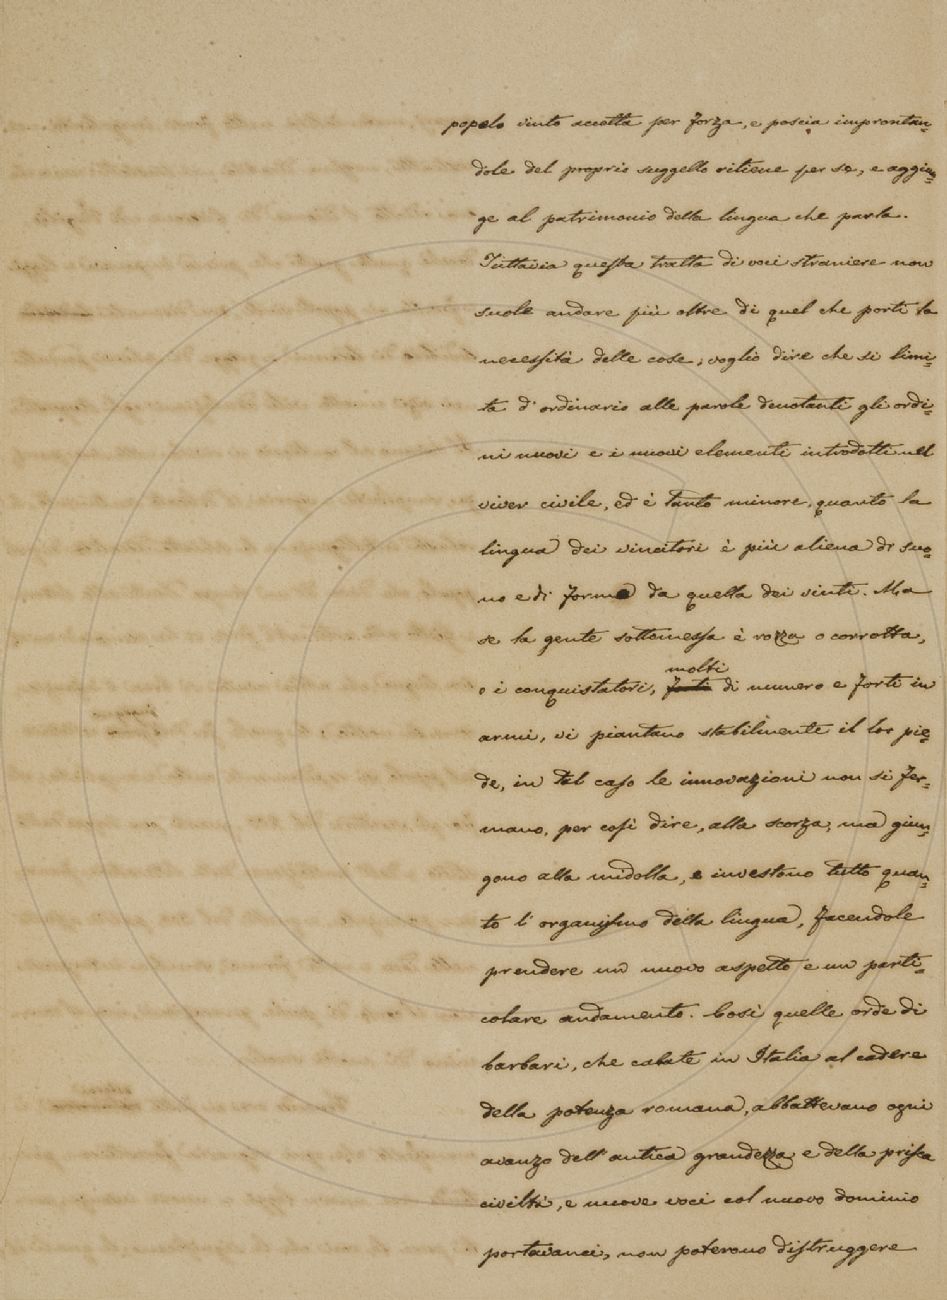 popolo vinto accetta per forza, e poscia improntan=
dole del proprio suggello ritiene per se, e aggiu=
ge al patrimonio della lingua che parla.
Tuttavia questa tratta di voci straniere non
suole andare più oltre di quel che porti la
necessità delle cose, voglio dire che si limi=
ta d'ordinario alle parole denotanti gli ordi=
ni nuovi e i nuovi elementi introdotti nel
viver civile, ed è tanto minore, quanto la
lingua dei vincitori è più aliena di suo=
no e di forma da quella dei vinti. Ma
se la gente sottomessa è rozza o corrotta,
molti
o i conquistatori, forti di numero e forti in
armi, vi piantano stabilmente il lor pie=
de, in tal caso le innovazioni non si fer=
mano, per così dire, alla scorza, ma giun=
gono alla midolla, e investono tutto quan=
to l'organismo della lingua, facendole
prendere un nuovo aspetto e un parti=
colare andamento. Così quelle orde di
barbari, che calate in Italia al cadere
della potenza romana, abbattevano ogni
avanzo dell'antica grandezza e della prisca
civiltà, e nuove voci col nuovo dominio
portavanci, non poterono distruggere